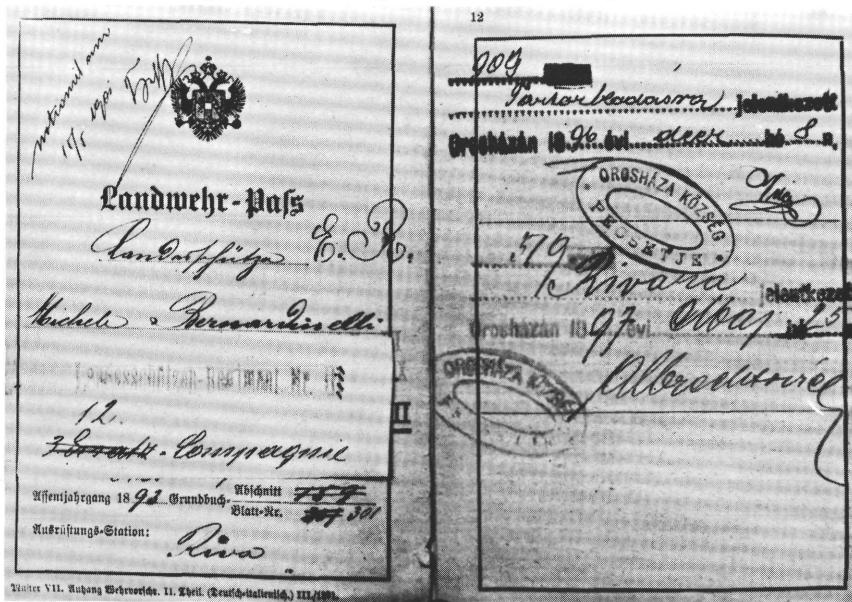 notionirt am
Landwehr-Paß
Landesschütze E. R.
Michele Bernardinelli
12.
Ersatz-Compagnie
II
Assentjahrgang 1893 Grundbuch- Abschnitt
Blatt-Nr. 301
Ausrüstungs-Station:
Riva
Muster VII. Anhang Wehrvorschr. II. Theil. (Deutsch-italienisch.) III./1891.
12
909
jelentkezett
Orosházán 1896 évi decz hó 8 n.
OROSHÁZA KÖZSÉG
PECSÉTJE
579
Rivára
jelentkezett
Orosházán 1897 évi Maj hó 25
OROSHÁZA KÖZSÉG